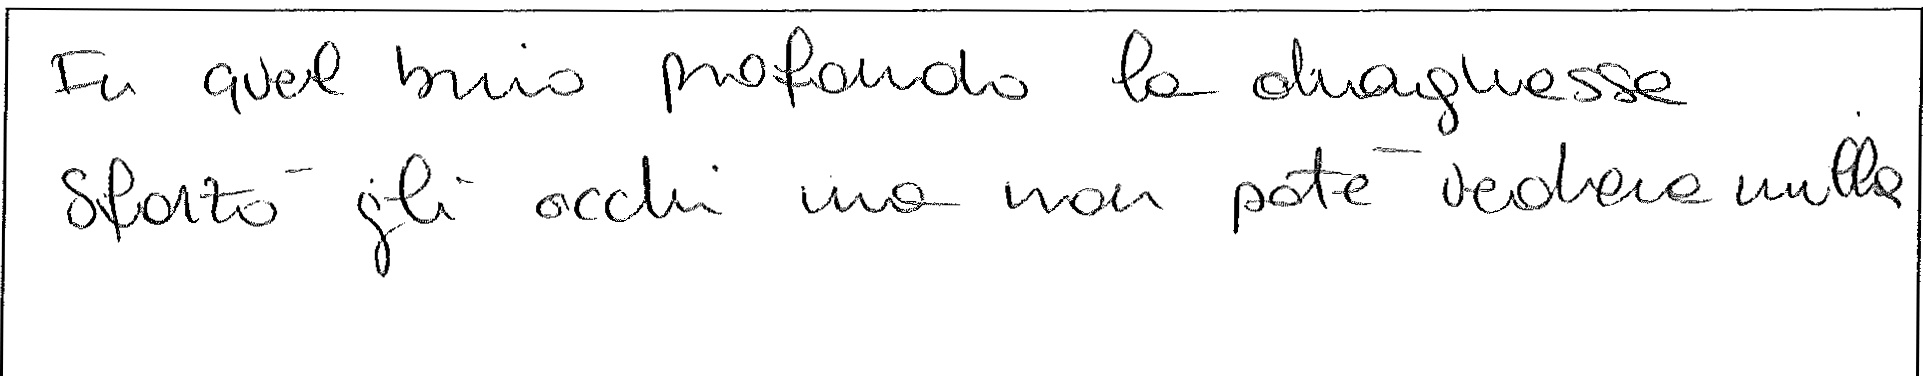 In quel buio profondo la draghessa
sfortò gli occhi ma non poté vedere nulla